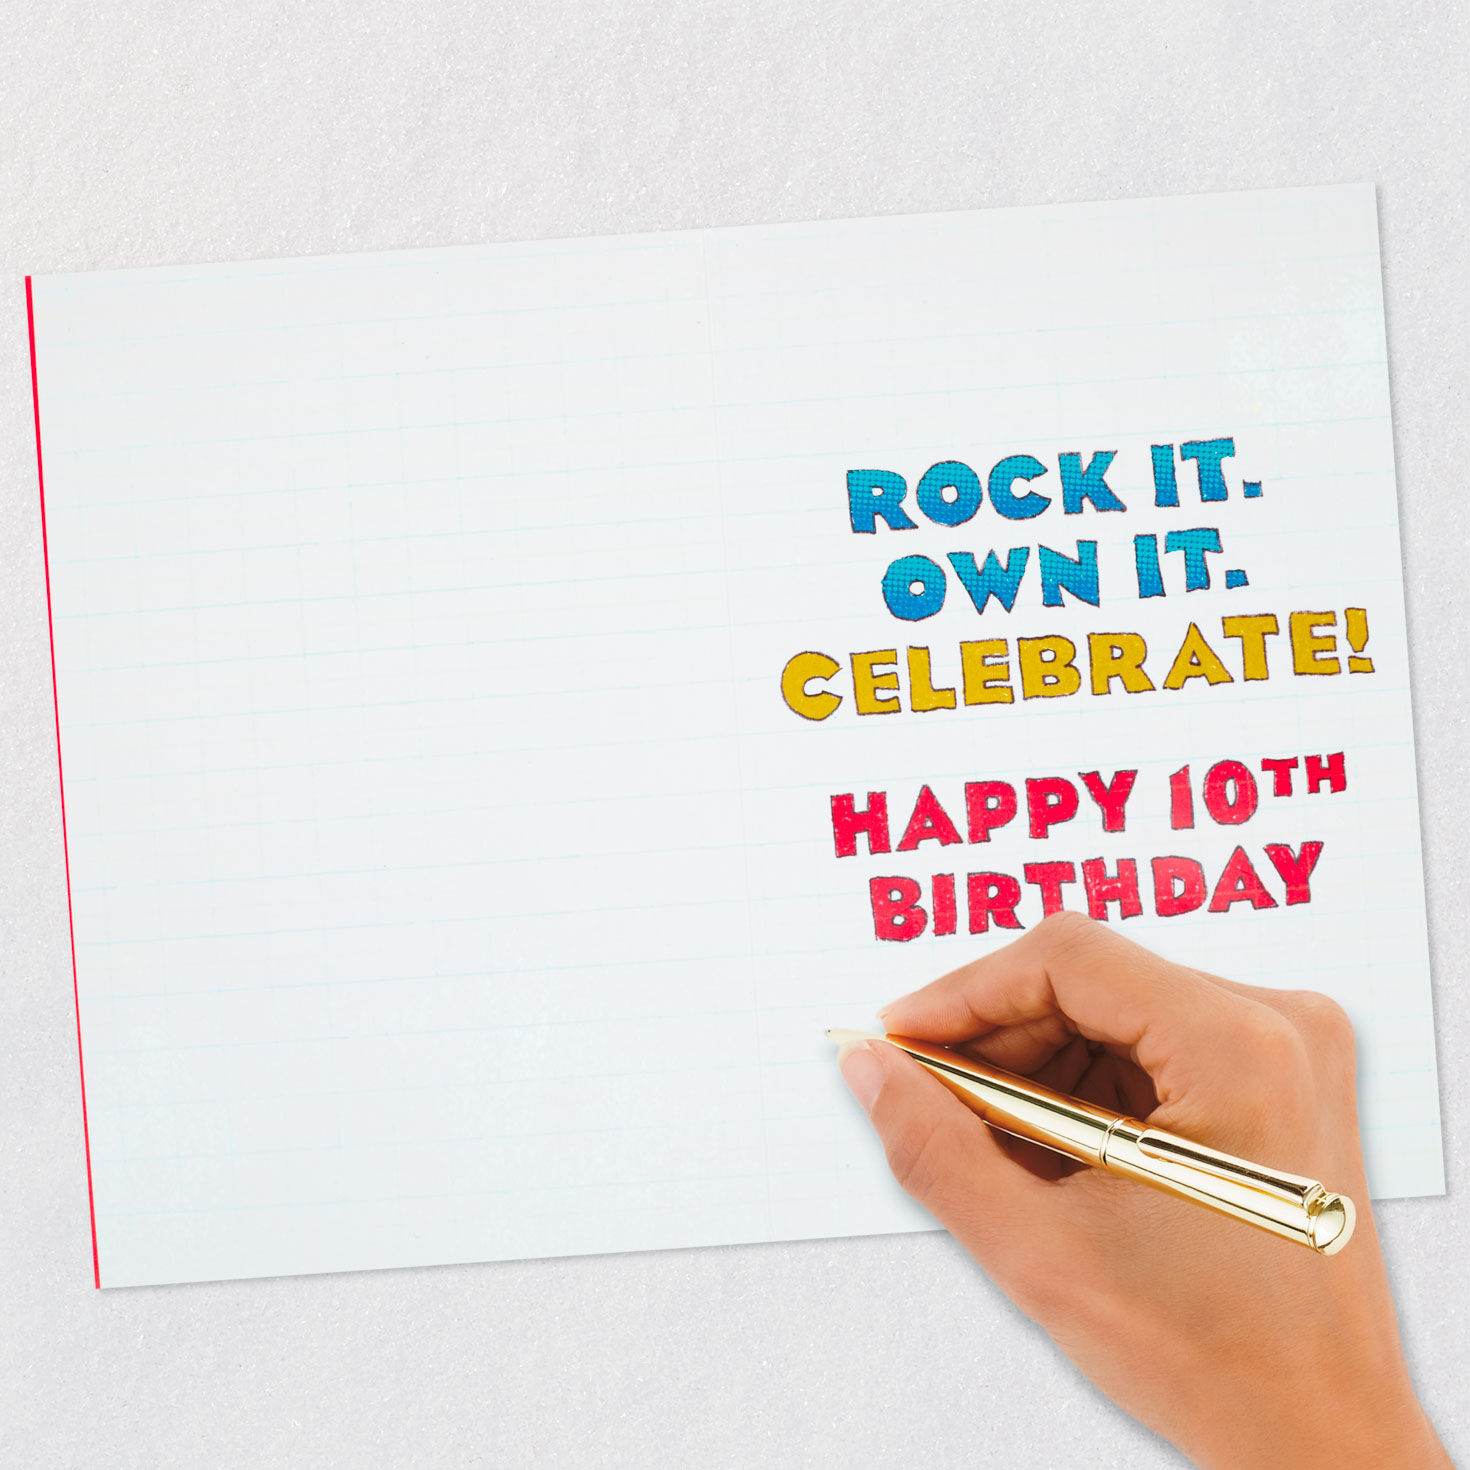 ROCK IT.
OWN IT.
CELEBRATE!
HAPPY 10TH
BIRTHDAY